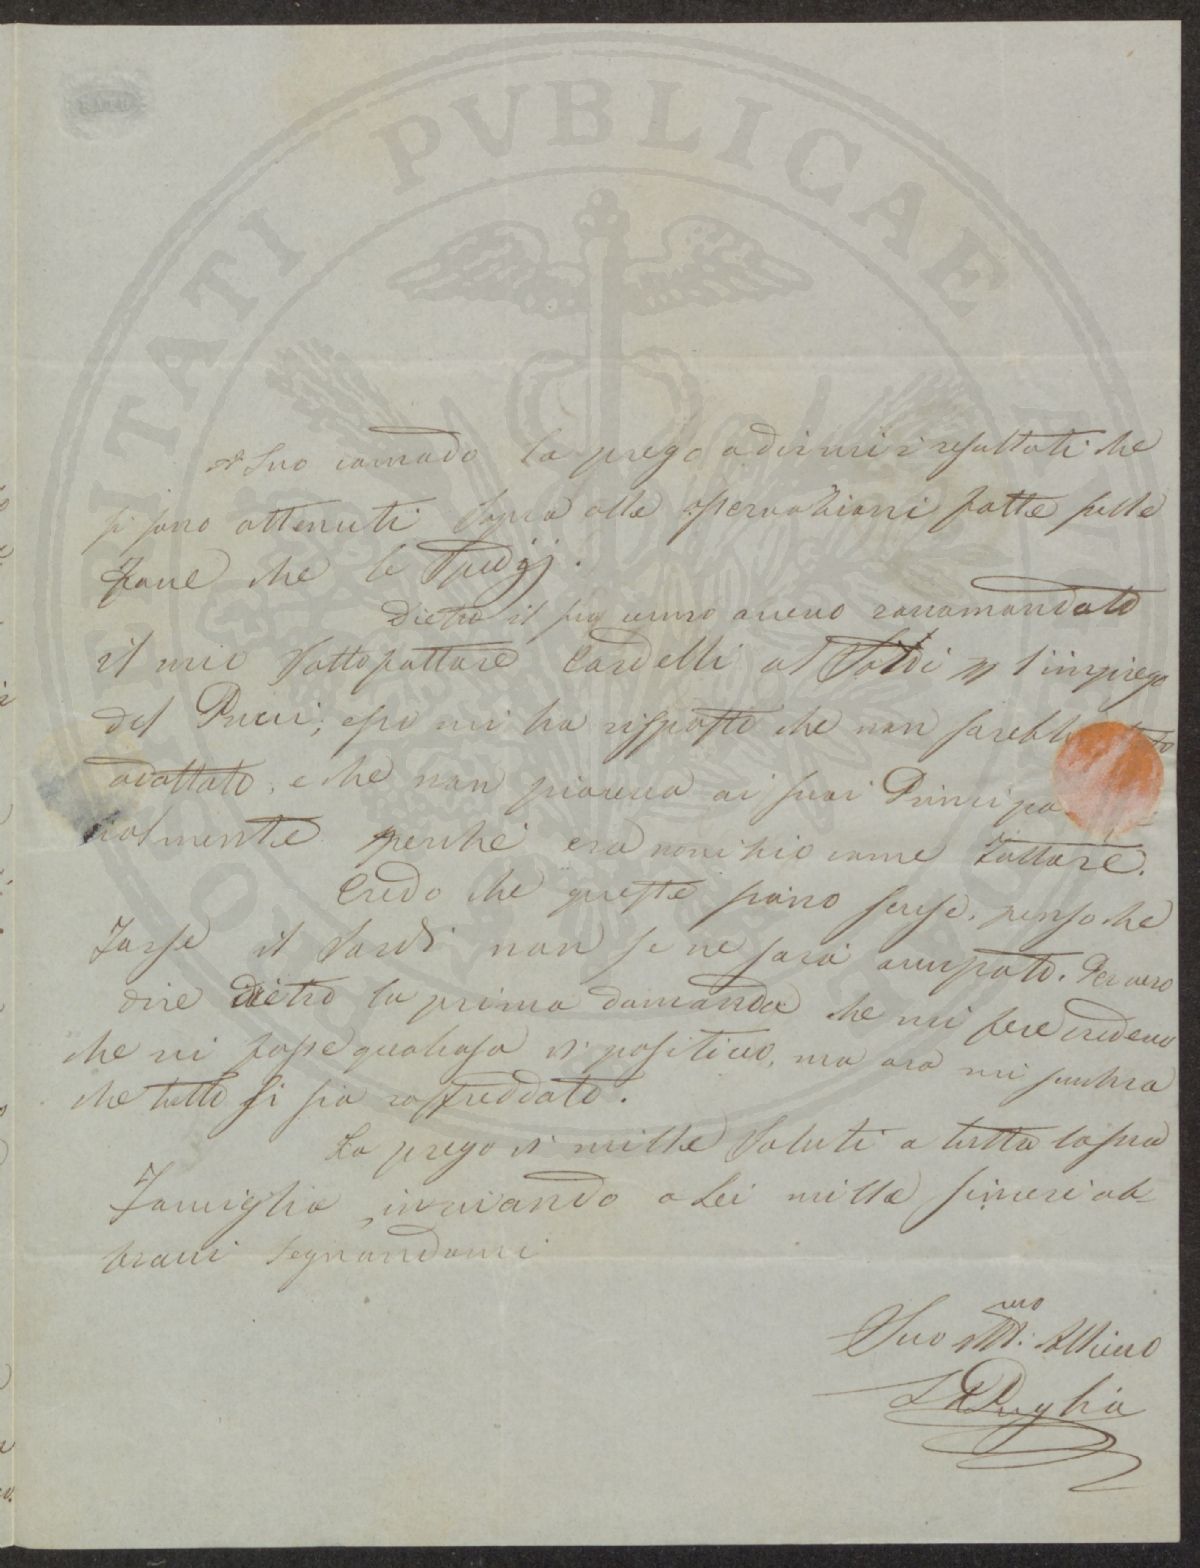 A Suo comodo la prego a dirmi i resultati che
si sono attenuti sopra alle osservazioni fatte sulla
che le spedij.
Dietro il suo avevo raccomandato
il mio Sottofattore Cardelli al Sardi p l'impiego
del Pucci, esso mi ha risposto che non sarebbe
adattato, e che non piaceva ai suoi Principa
perche era come Fattore.
Credo che queste siano scuse, penso che
forse il Sardi non se ne sarà occupato. Per vero
dire dietro la prima domanda che mi fece credevo
che vi fosse qualcosa di positivo, ma ora mi sembra
che tutto si sia raffreddato.
La prego di mille saluti a tutta la sua
Famiglia, inviando a Lei mille sinceri ab
bracci segnandomi
Suo Aff.mo Amico
Puglia
PVBLICAE